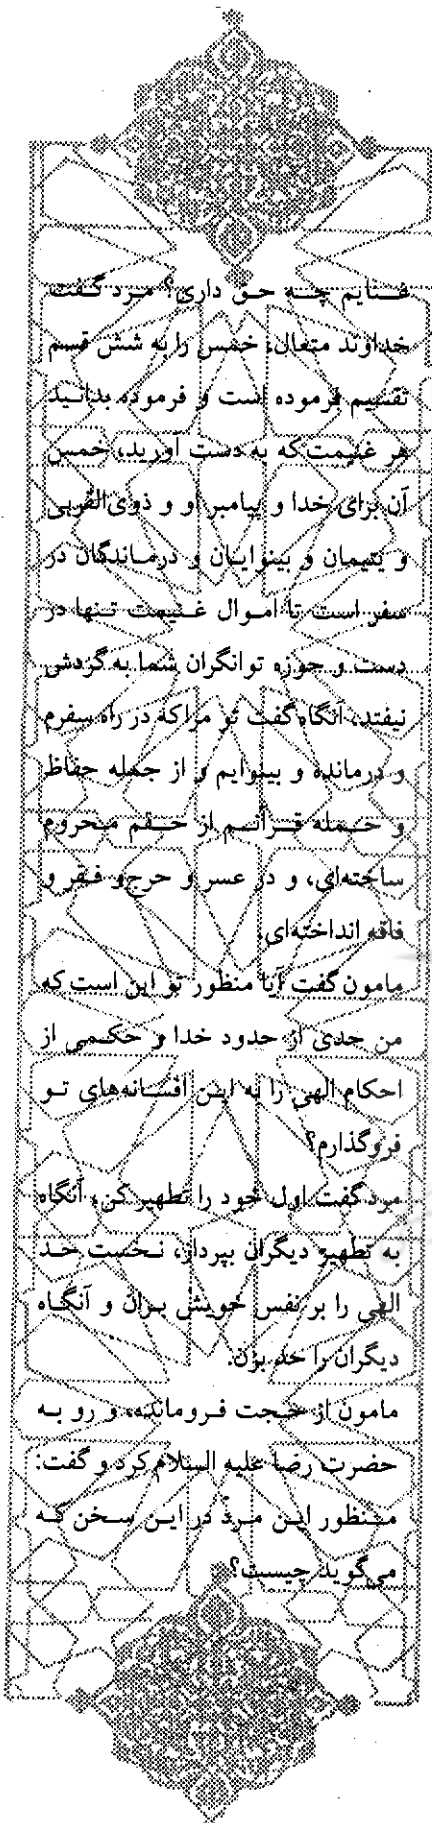 غنایم چه حق داری؟ مرد گفت
خداوند متعال، خمس را به شش قسم
تقسیم فرموده است و فرموده بدانید
هر غنیمت که به دست آورید، خمس
آن برای خدا و پیامبر او و ذوی‌القربی
و یتیمان و بینوایان و درماندگان در
سفر است تا اموال غنیمت تنها در
دست و حوزه توانگران شما به گردش
نیفتد، آنگاه گفت تو مرا که در راه سفرم
و درمانده و بینوایم و از جمله حفاظ
و حمله قرآنم از حقم محروم
ساخته‌ای، و در عسر و حرج و فقر و
فاقه انداخته‌ای.
مامون گفت آیا منظور تو این است که
من حدی از حدود خدا و حکمی از
احکام الهی را به این افسانه‌های تو
فروگذارم؟
مرد گفت اول خود را تطهیر کن، آنگاه
به تطهیر دیگران بپرداز، نخست حد
الهی را بر نفس خویش بران و آنگاه
دیگران را حد بزن.
مامون از حجت فرومانده، و رو به
حضرت رضا علیه السلام کرد و گفت:
منظور این مرد در این سخن که
می‌گوید چیست؟